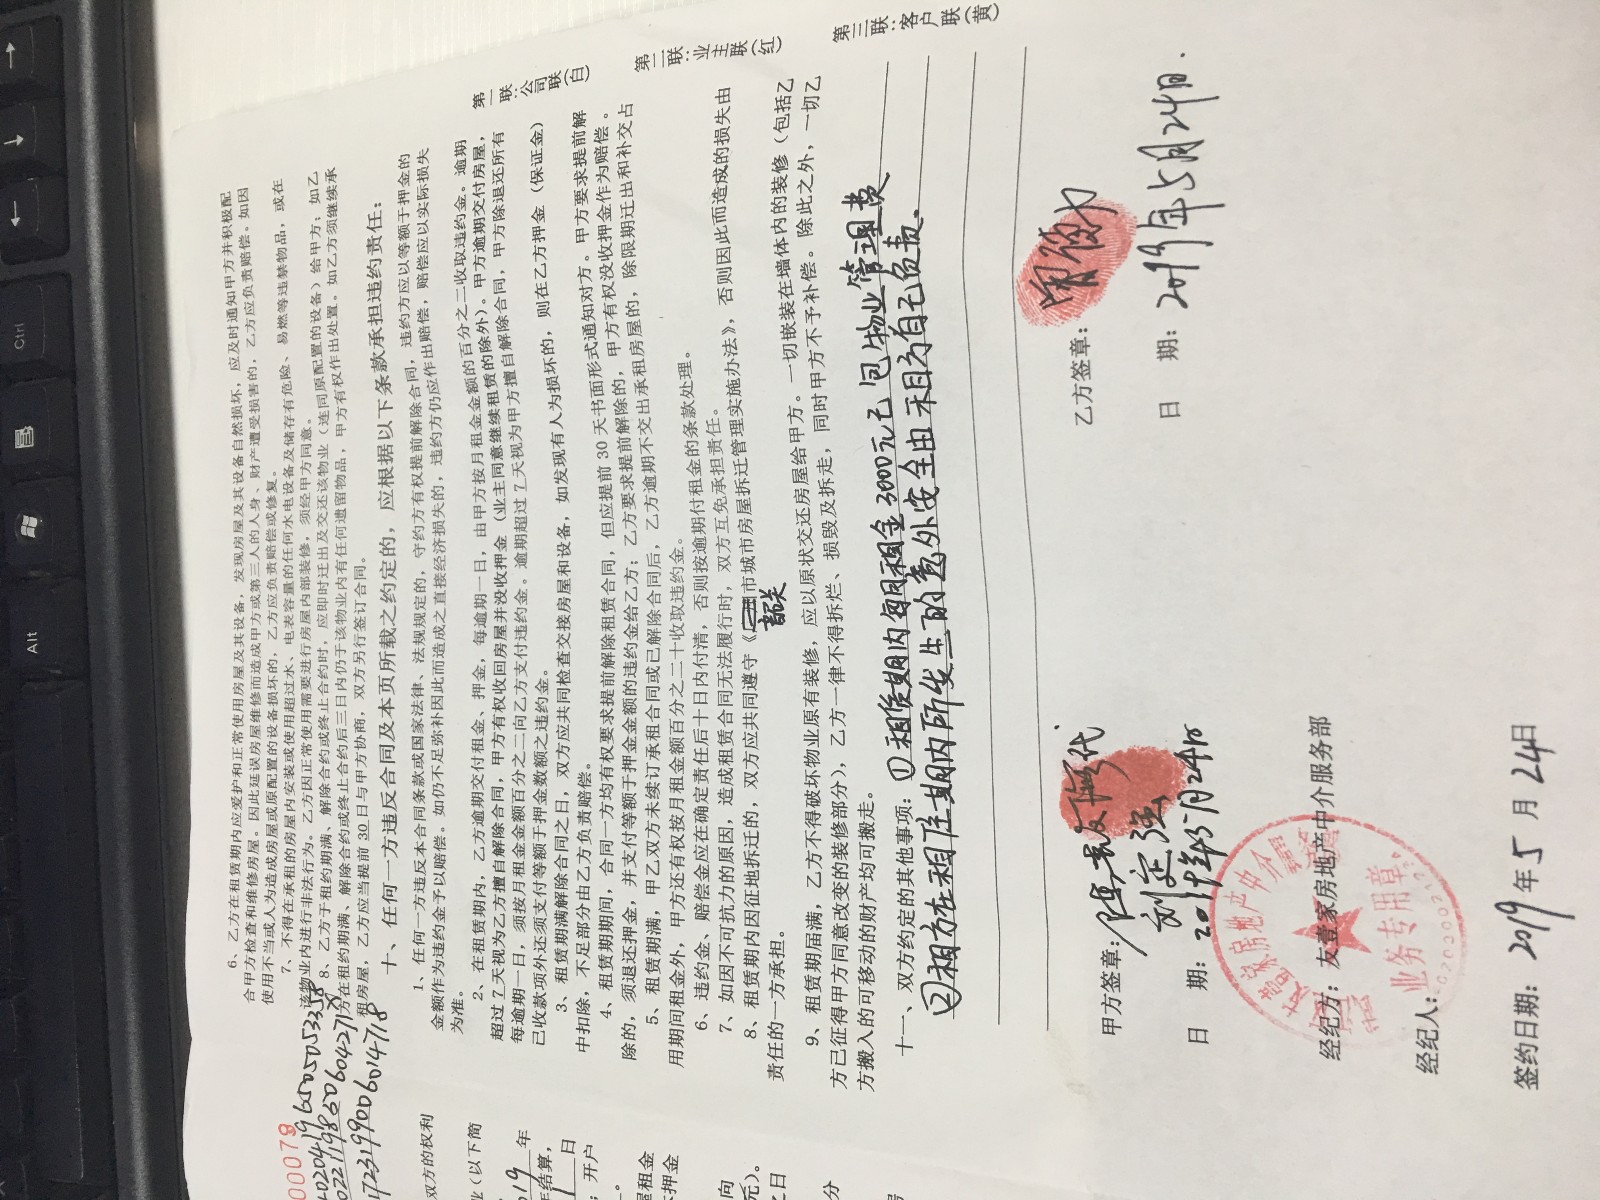 6、乙方在租赁期内应爱护和正常使用房屋及其设备，发现房屋及其设备自然损坏，应及时通知甲方并积极配
合甲方检查和维修房屋。因此延误房屋维修而造成甲方或第三人的人身、财产遭受损害的，乙方应负责赔偿。如因
使用不当或人为造成房屋或原配置的设备损坏的，乙方应负责赔偿或修复。
7、不得在承租的房屋内安装或使用超过水、电表容量的任何水电设备及储存有危险、易燃等违禁物品，或在
该物业内进行非法行为。乙方因正常使用需要进行房屋内部装修，须经甲方同意。
8、乙方于租约期满、解除合约或终止合约时，应即时迁出及交还该物业（连同原配置的设备）给甲方；如乙
方在租约期满、解除合约或终止合约后三日内仍于该物业内有任何遗留物品，甲方有权作出处置。如乙方须继续承
租房屋，乙方应当提前 30 日与甲方协商，双方另行签订合同。
十、任何一方违反合同及本页所载之约定的，应根据以下条款承担违约责任：
1、任何一方违反本合同条款或国家法律、法规规定的，守约方有权提前解除合同，违约方应以等额于押金的
金额作为违约金予以赔偿。如仍不足弥补因此而造成之直接经济损失的，违约方仍应作出赔偿，赔偿应以实际损失
为准。
2、在租赁期内，乙方逾期交付租金、押金，每逾期一日，由甲方按月租金金额的百分之二收取违约金。逾期
超过 7 天视为乙方擅自解除合同，甲方有权收回房屋并没收押金（业主同意继续租赁的除外）。甲方逾期交付房屋，
每逾期一日，须按月租金金额百分之二向乙方支付违约金。逾期超过 7 天视为甲方擅自解除合同，甲方除退还所有
已收款项外还须支付等额于押金数额之违约金。
3、租赁期满解除合同之日，双方应共同检查交接房屋和设备，如发现有人为损坏的，则在乙方押金（保证金）
中扣除，不足部分由乙方负责赔偿。
4、租赁期期间，合同一方均有权要求提前解除租赁合同，但应提前 30 天书面形式通知对方。甲方要求提前解
除的，须退还押金，并支付等额于押金金额的违约金给乙方；乙方要求提前解除的，甲方有权没收押金作为赔偿。
5、租赁期满，甲乙双方未续订承租合同或已解除合同后，乙方逾期不交出承租房屋的，除限期迁出和补交占
用期间租金外，甲方还有权按月租金额百分之二十收取违约金。
6、违约金、赔偿金应在确定责任后十日内付清，否则按逾期付租金的条款处理。
7、如因不可抗力的原因，造成租赁合同无法履行时，双方互免承担责任。
8、租赁期内因征地拆迁的，双方应共同遵守《市城市房屋拆迁管理实施办法》，否则因此而造成的损失由
韶关
责任的一方承担。
9、租赁期届满，乙方不得破坏物业原有装修，应以原状交还房屋给甲方。一切嵌装在墙体内的装修（包括乙
方已征得甲方同意改变的装修部分），乙方一律不得拆烂、损毁及拆走，同时甲方不予补偿。除此之外，一切乙
方搬入的可移动的财产均可搬走。
十一、双方约定的其他事项：①租赁期内每月租金3000元已包物业管理费
②租方在租住期内所发生的意外安全由租方自己负责.
甲方签章：
刘定强
日 期：2019年5月24日
乙方签章：
日 期：2019年5月24日.
经纪方：友壹家房地产中介服务部
业务专用章
经纪人：
签约日期：2019年5月24日
第一联：公司联（白）
第二联：业主联（红）
第三联：客户联（黄）
00079
双方的权利
业（以下简
年
结算，
日
；开户
屋租金
押金
向
元）。
日
分
Alt
Ctrl